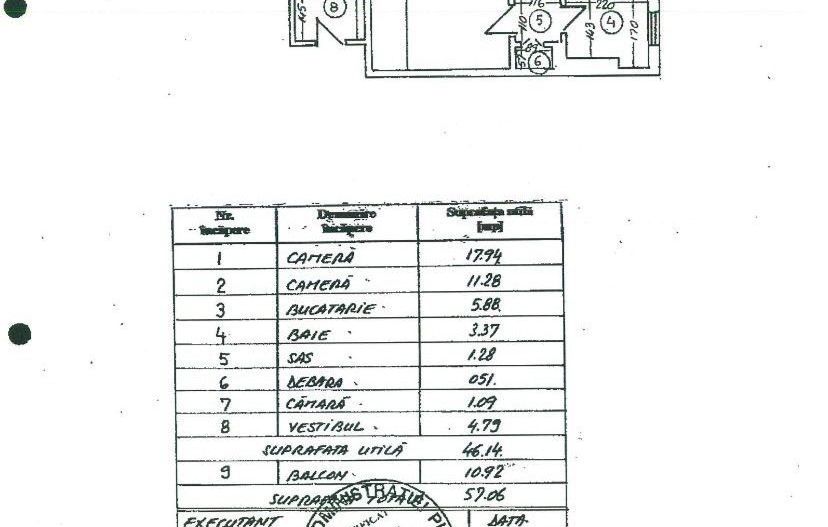 145
8
116
220
5
4
110
163
170
89
57
6
Nr. încăpere
Denumire încăpere
Suprafaţa utilă [mp]
1 CAMERĂ 17.94
2 CAMERĂ 11.28
3 BUCATARIE 5.88
4 BAIE 3.37
5 SAS 1.28
6 DEBARA 051.
7 CĂMARĂ 1.09
8 VESTIBUL 4.79
SUPRAFATA UTILĂ 46.14
9 BALCON 10.92
SUPRAFATA TOTALĂ 57.06
EXECUTANT DATA